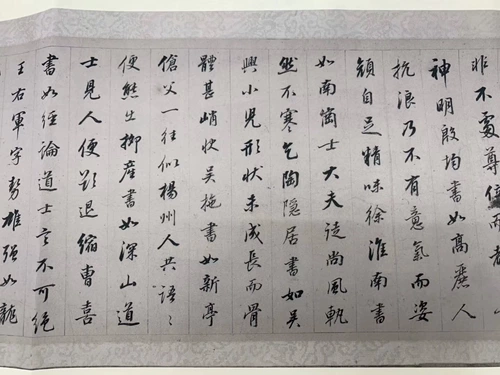 非不處尊位
神明殷均書如高麗人
抗浪乃不有意氣而姿
顏自足精味徐淮南書
如南岡士大夫徒尚風軌
然不寒乞陶隱居書如吳
興小兒形狀未成長而骨
體甚峭快吳施書如新亭
傖父一往似楊州人共語〻
便態出柳產書如深山道
士見人便欲退縮曹喜
書如經論道士言不可絕
王右軍字勢雄强如龍